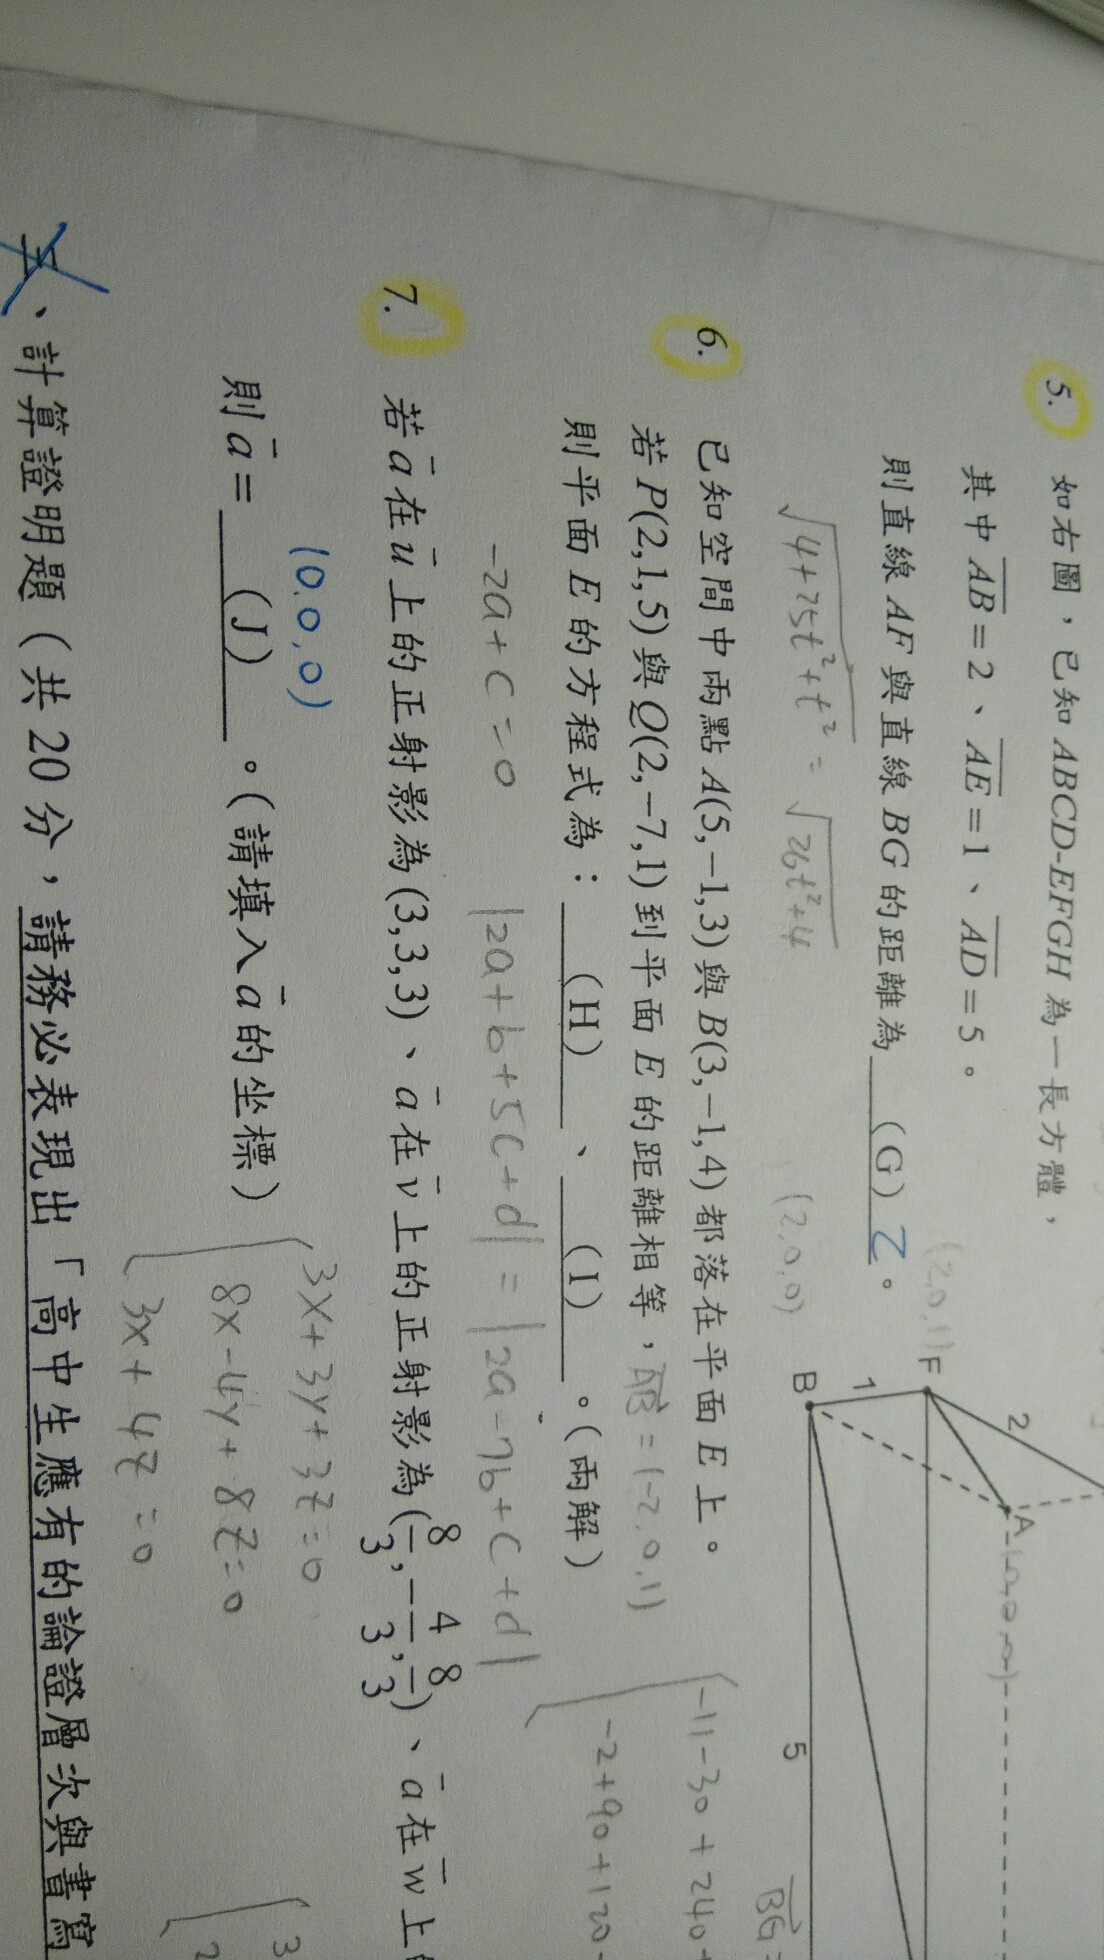 5. 如右圖，已知ABCD-EFGH為一長方體，
其中AB=2、AE=1、AD=5。
則直線AF與直線BG的距離為 (G) 2 。
√4+25t²+t² = √26t²+4
(2,0,0)
(2,0,1)
F
B
A
1
2
5
(0,0,0)
BG=
6. 已知空間中兩點A(5,-1,3)與B(3,-1,4)都落在平面E上。
若P(2,1,5)與Q(2,-7,1)到平面E的距離相等，AB=(-2,0,1)
則平面E的方程式為： (H) 、 (I) 。(兩解)
-2a+c=0
|2a+b+5c+d|=|2a-7b+c+d|
-11-30+240+
-2+90+120-
7. 若a在u上的正射影為(3,3,3)、a在v上的正射影為(8/3,-4/3,8/3)、a在w上
(0,0,0)
則a= (J) 。(請填入a的坐標)
3x+3y+3z=0
8x-4y+8z=0
3x+4z=0
3
2
、計算證明題（共20分，請務必表現出「高中生應有的論證層次與書寫